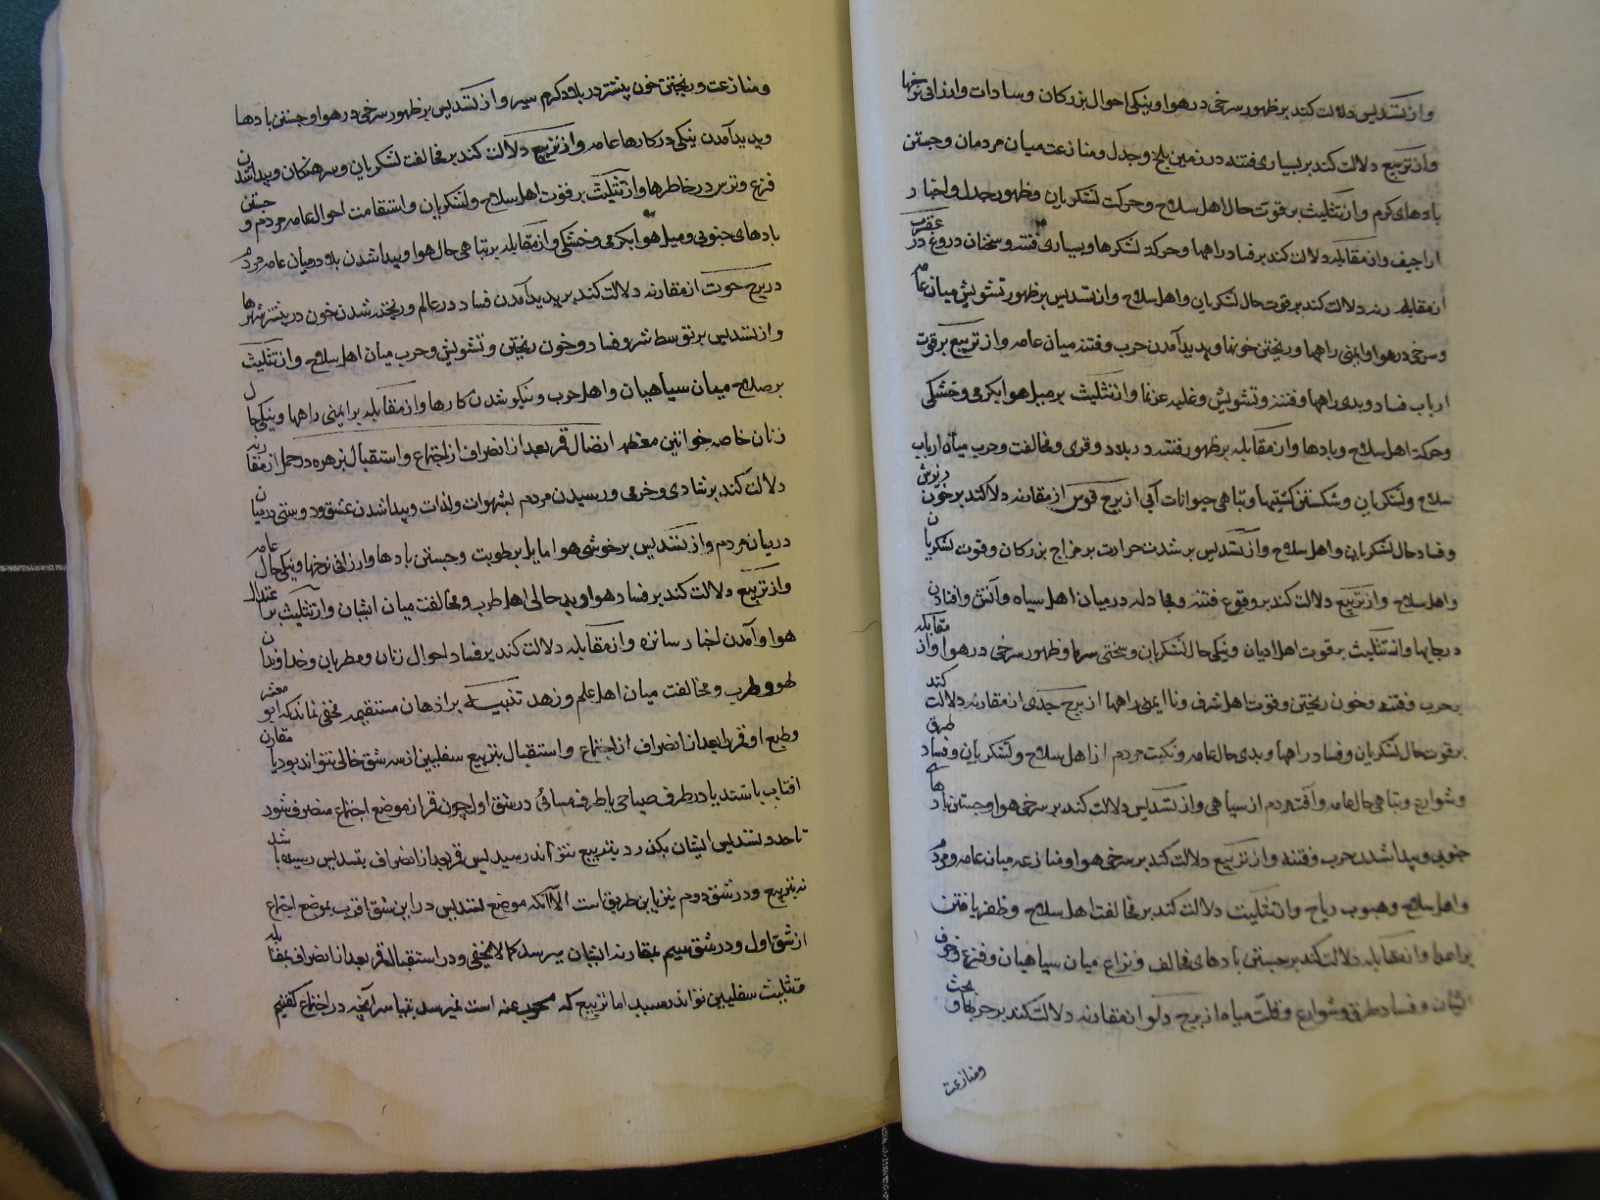 واز تسدیس دلالت کند بر ظهور سرخی در هوا و نیکی احوال بزرکان و سادات و ارزانی نرخها
واز تربیع دلالت کند بر بسیاری فتنه در زمین بلخ و جدل و منازعت میان مردمان و جستن
بادهای کرم واز تثلیث بر قوت حال اهل سلاح و حرکت لشکریان و ظهور جدل و اخبار
اراجیف واز مقابله دلالت کند بر فساد راهها و حرکة لشکرها و بسیاری فتنه و سخنان دروغ در عقرب
از مقابله دلالت کند بر قوت حال لشکریان و اهل سلاح واز تسدیس بر ظهور تشویش میان عامه
و سرخی در هوا و ایمنی راهها و ریختن خونها و پدید آمدن حرب و فتنه میان عامه واز تربیع بر قوت
ارباب فساد و بدی راهها و فتنه و تشویش و غلبه واز تثلیث بر میل هوا بکرمی و خشکی
و حرکة اهل سلاح و بادها واز مقابله بر ظهور فتنه در بلاد و قری و مخالفت و حرب میانه ارباب
سلاح و لشکریان و شکستن کشتیها و تباهی حیوانات آبی از برج قوس از مقارنه دلالت کند بر خون ریزش
و فساد حال لشکریان و اهل سلاح واز تسدیس بر شدن حرارت بر مزاج بزرکان و قوت لشکریان
و اهل سلاح واز تربیع دلالت کند بر وقوع فتنه و مجادله در میان اهل سپاه و آتش افتادن
در جایها واز تثلیث بر قوت اهل ادیان و نیکی حال لشکریان و سختی سرما و ظهور سرخی در هوا واز مقابله
بحرب و فتنه و خون ریختن و قوت اهل شرف و نا ایمنی راهها از برج جدی از مقارنه دلالت کند
بر قوت حال لشکریان و فساد راهها و بدی حال عامه و نکبت مردم از اهل سلاح و لشکریان و فساد طرق
و شوارع و تباهی حال عامه و آفت مردم از سپاهی واز تسدیس دلالت کند بر سرخی هوا و جستن بادهای
جنوبی و پیدا شدن حرب و فتنه واز تربیع دلالت کند بر سرخی هوا و منازعه میان عامه و مردم
و اهل سلاح و هبوب ریاح واز تثلیث دلالت کند بر مخالفت اهل سلاح و ظفر یافتن
بر اعدا واز مقابله دلالت کند بر جستن بادهای مخالف و نزاع میان سپاهیان و فزع و خوف
ایشان و فساد طرق و شوارع و قلت میاه از برج دلو از مقارنه دلالت کند بر حربها و بحث
و منازعت
و منازعت و ریختن خون بیشتر در بلاد کرم سیر واز تسدیس بر ظهور سرخی در هوا و جستن بادها
و پدید آمدن نیکی در کارها عامه واز تربیع دلالت کند بر مخالفت لشکریان و سرهنکان و پیدا شدن
فزع و ترس در خاطرها واز تثلیث بر قوت اهل سلاح و لشکریان و استقامت احوال عامه مردم و جستن
بادهای جنوبی و میل هوا بکرمی و خشکی واز مقابله بر تباهی حال هوا و پیدا شدن بلا در میان عامه مردم
در برج حوت از مقارنه دلالت کند بر پدید آمدن فساد در عالم و ریخته شدن خون در بیشتر شهرها
واز تسدیس بر توسط شر و فساد و خون ریختن و تشویش و حرب میان اهل سلاح واز تثلیث
بر صلاح میان سپاهیان و اهل حرب و نیکو شدن کارها واز مقابله بر ایمنی راهها و نیکی حال
زنان خاصه خواتین معظمه اتصال قمر بعد از انصراف از اجتماع و استقبال بزهره در حمل از مقارنه
دلالت کند بر شادی و خرمی و رسیدن مردم بشهوات و لذات و پیدا شدن عشق و دوستی در میان
در میان مردم واز تسدیس بر خوشی هوا مایل برطوبت و جستن بادها و ارزانی نرخها و نیکی حال عامه
واز تربیع دلالت کند بر فساد هوا و بد حالی اهل طرب و مخالفت میان ایشان واز تثلیث بر اعتدال
هوا و آمدن اخبار سارّه واز مقابله دلالت کند بر فساد احوال زنان و مطربان و خداوندان
لهو و طرب و مخالفت میان اهل علم و زهد تنبیه بر اذهان مستقیمه مخفی نماند که
قمر بعد از انصراف از اجتماع و استقبال بتربیع سفلیین از سه شق خالی نتواند بود یا مقارن
افتاب باشند یا در طرف صباحی یا طرف مسائی در شق اول چون قمر از موضع اجتماع منصرف شود
تا حد و تسدیس ایشان بکذرد بتربیع نتواند رسید پس قمر بعد از انصراف بتسدیس رسیده باشد
نه بتربیع و در شق دوم نیز باین طریق است الا آنکه موضع تسدیس در این شق اقرب بموضع اجتماع
از شق اول و در شق سیم بمقارنه ایشان میرسد کما لا یخفی و در استقبال قمر بعد از انصراف بمقابله
و تثلیث سفلیین تواند رسید اما تربیع که مبحوث عنه است نمیرسد بقیاس آنچه در اجتماع کفتیم